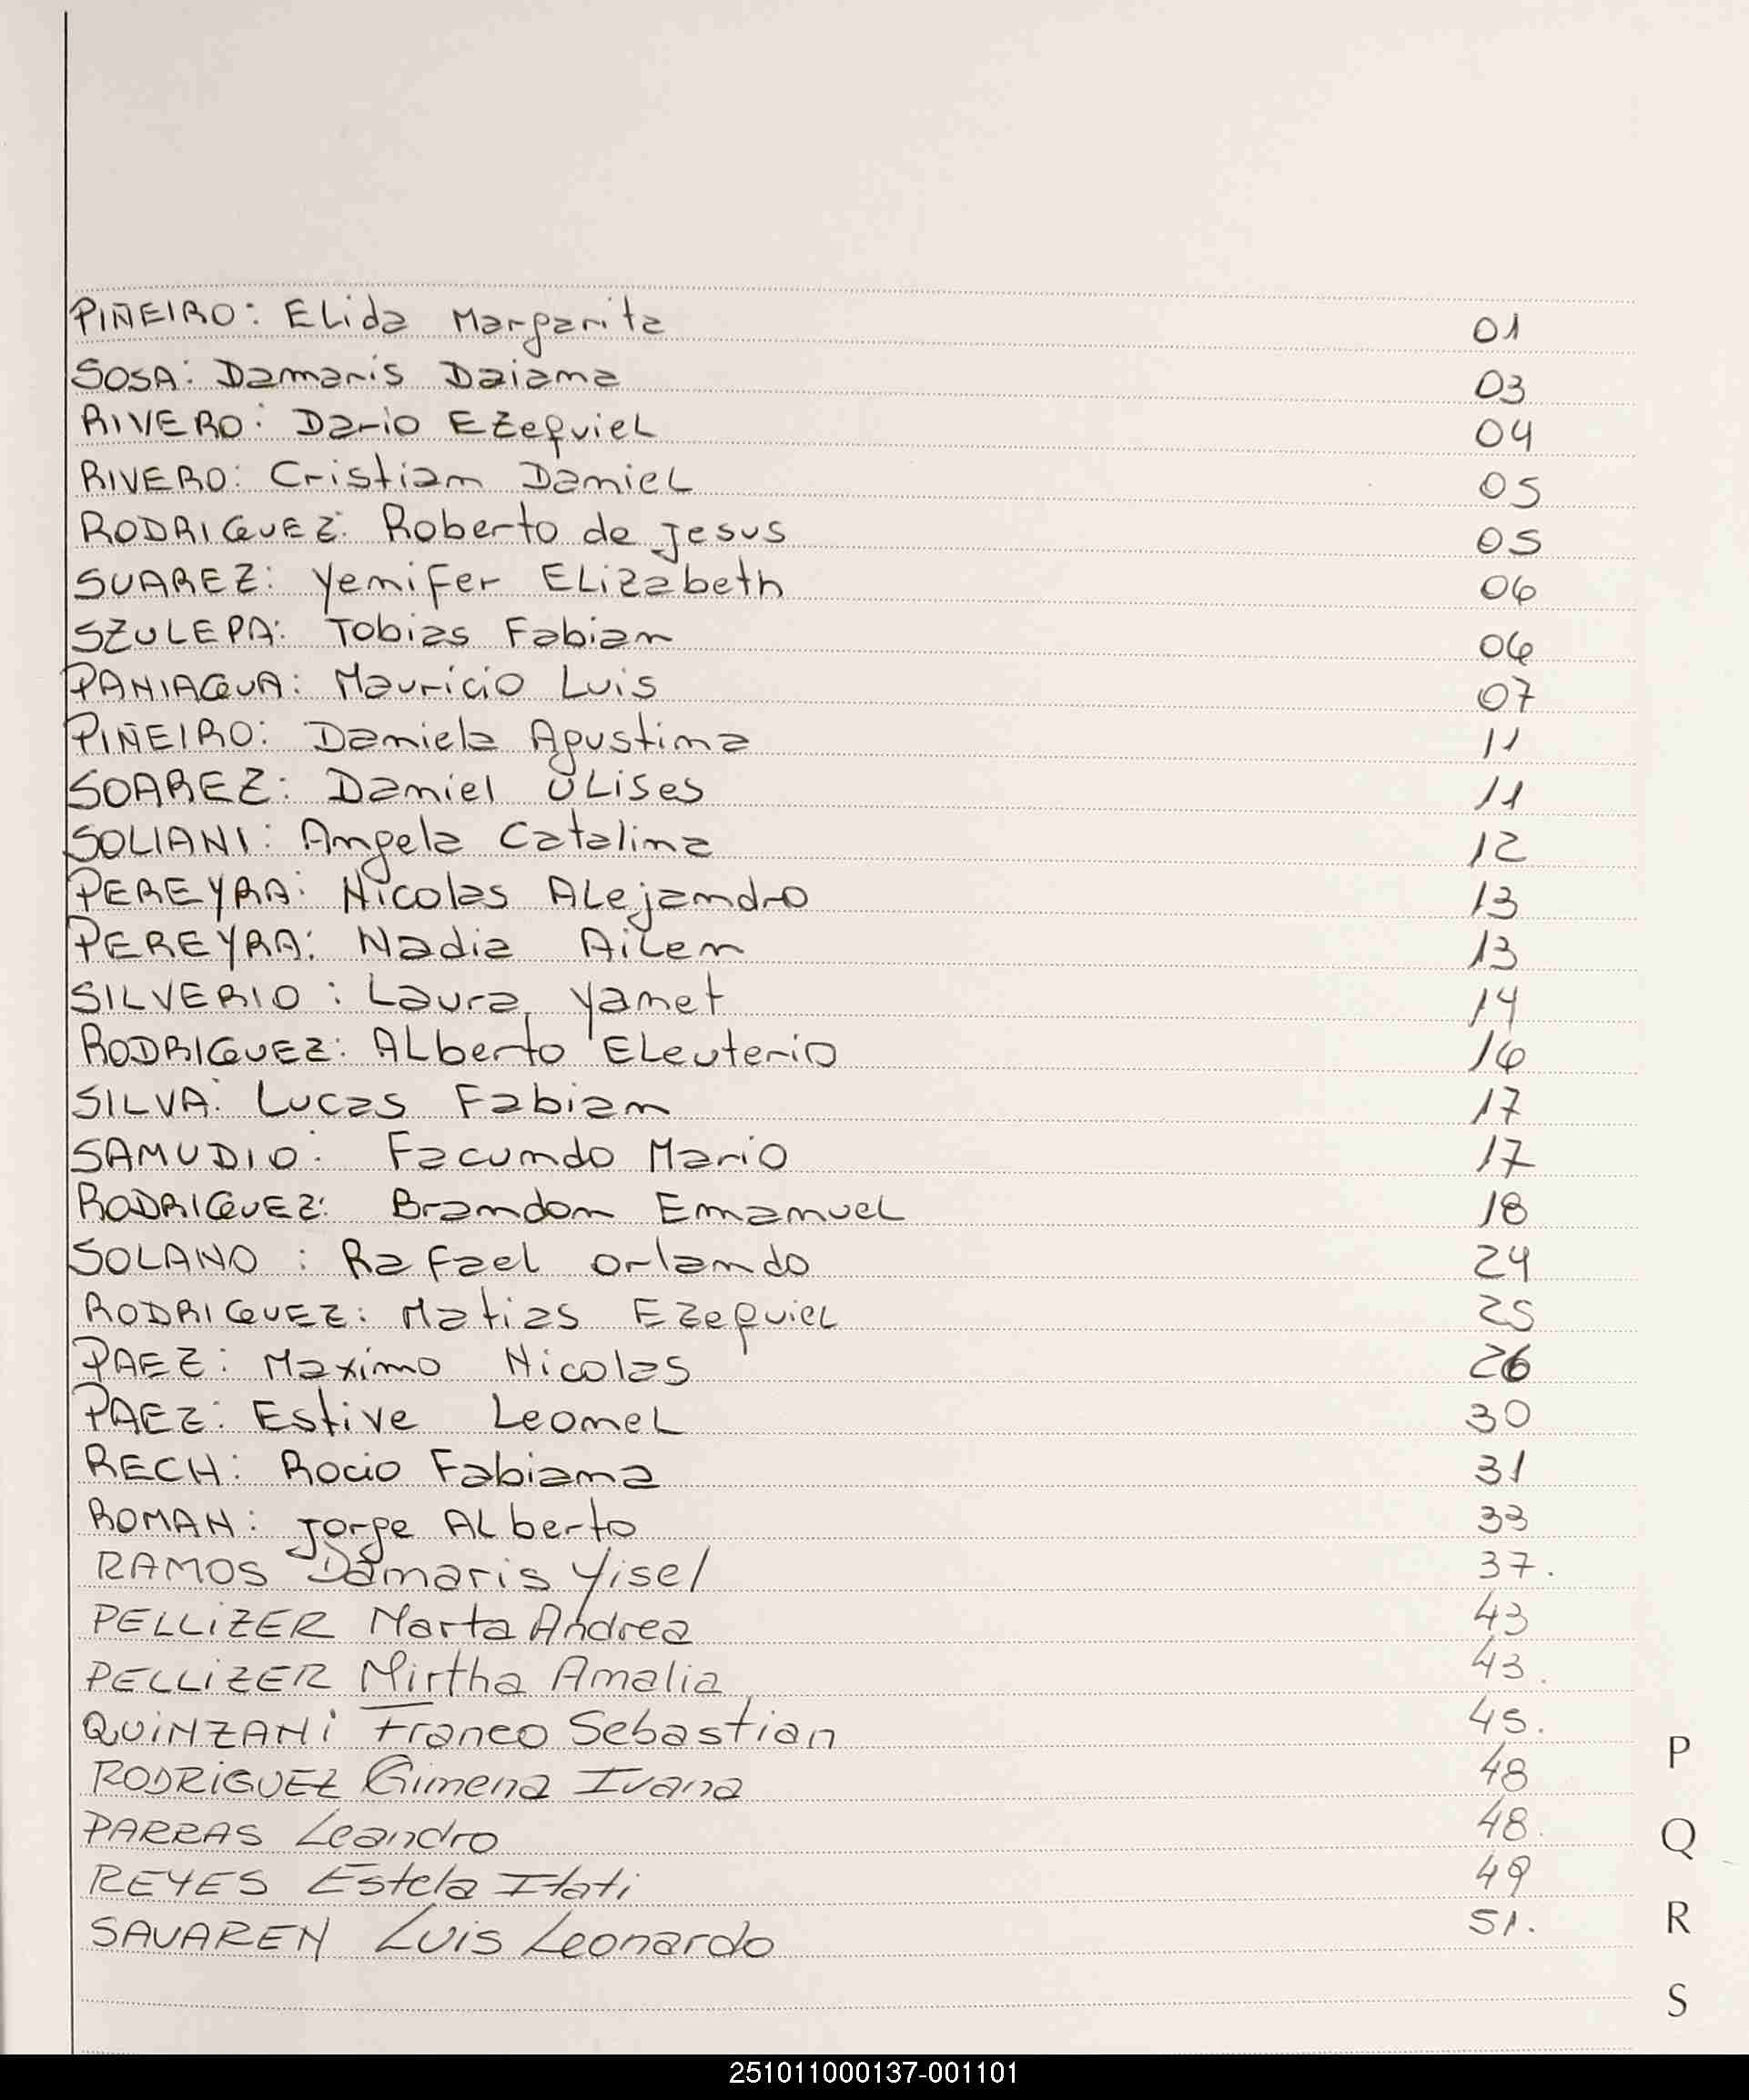 PIÑEIRO: Elida Margarita 01
SOSA: Damaris Daiana 03
RIVERO: Dario Ezequiel 04
RIVERO: Cristian Daniel 05
RODRIGUEZ: Roberto de Jesus 05
SUAREZ: Yenifer Elizabeth 06
SZULEPA: Tobias Fabian 06
PANIAGUA: Mauricio Luis 07
PIÑEIRO: Daniela Agustina 11
SOAREZ: Daniel Ulises 11
SOLIANI: Angela Catalina 12
PEREYRA: Nicolas Alejandro 13
PEREYRA: Nadia Ailen 13
SILVERIO: Laura Yanet 14
RODRIGUEZ: Alberto Eleuterio 16
SILVA: Lucas Fabian 17
SAMUDIO: Facundo Mario 17
RODRIGUEZ: Brandon Emanuel 18
SOLANO: Rafael Orlando 24
RODRIGUEZ: Matias Ezequiel 25
PAEZ: Maximo Nicolas 26
PAEZ: Estive Leonel 30
RECH: Rocio Fabiana 31
ROMAN: Jorge Alberto 33
RAMOS Damaris Yisel 37.
PELLIZER Marta Andrea 43
PELLIZER Mirtha Amalia 43.
QUINZANI Franco Sebastian 45.
RODRIGUEZ Gimena Ivana 48
PARRAS Leandro 48.
REYES Estela Itati 49
SAVAREN Luis Leonardo 51.
P
Q
R
S
251011000137-001101